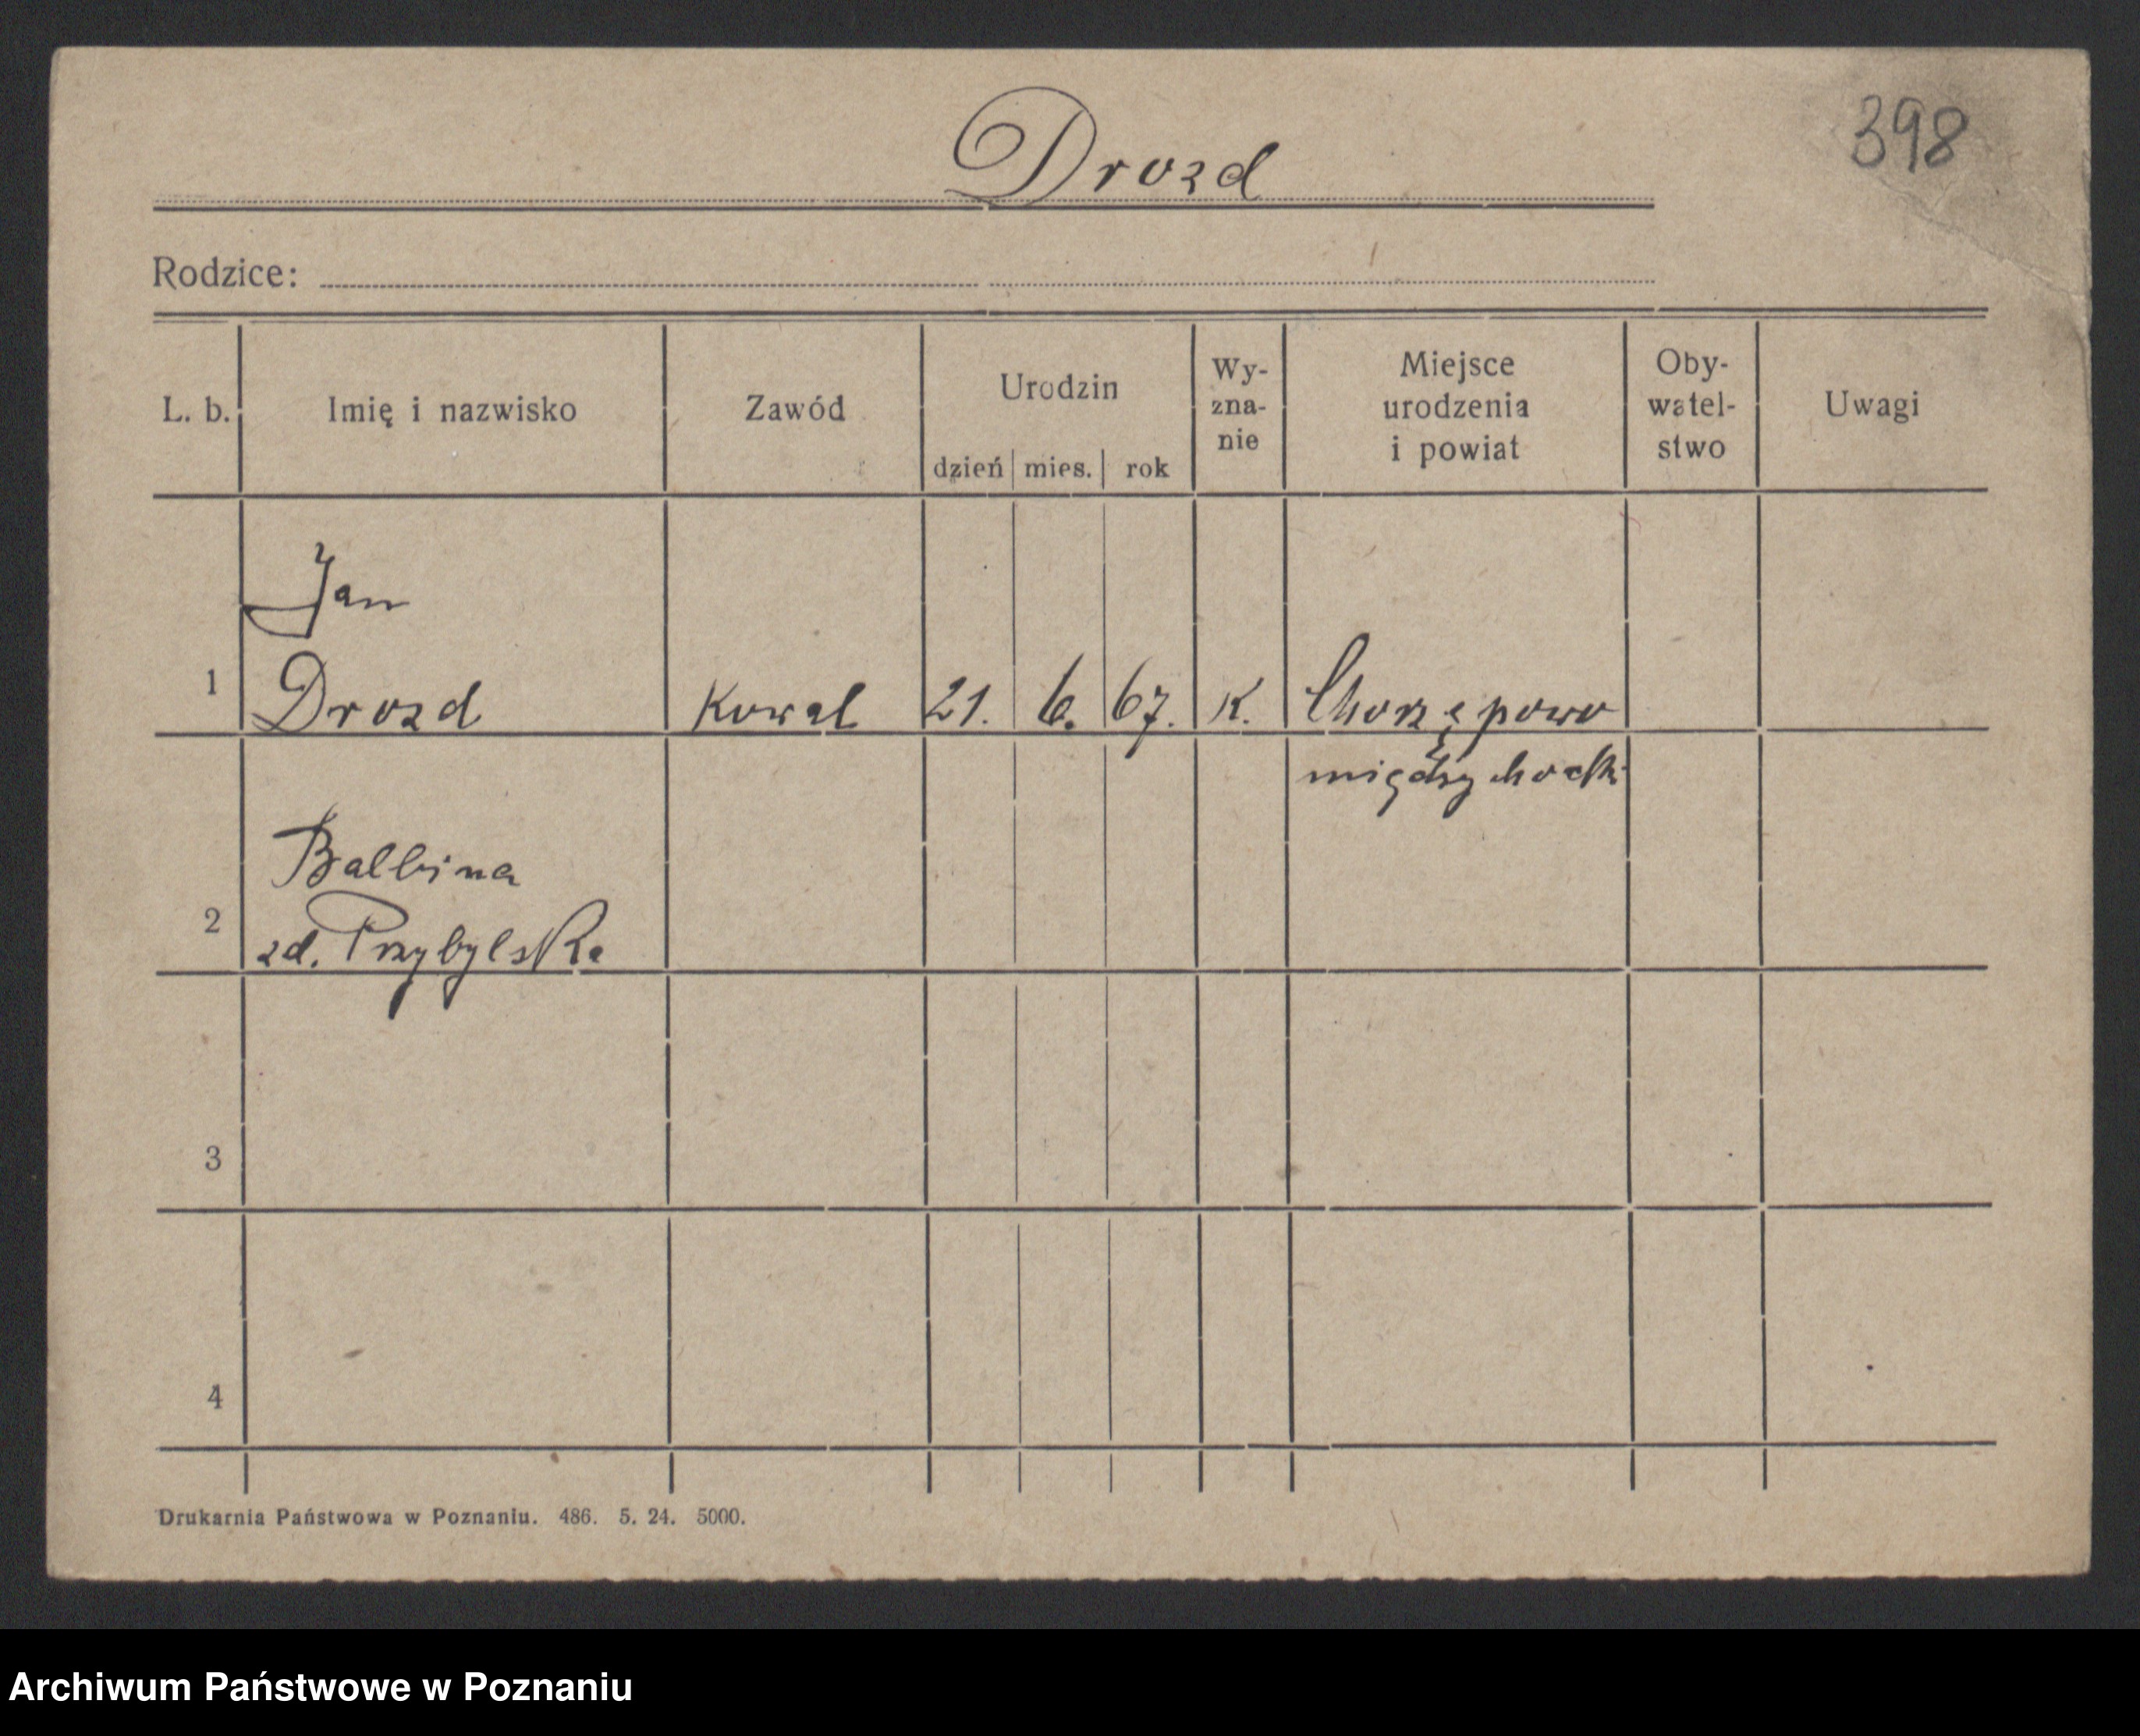 398
Drozd
Rodzice:
L. b.
Imię i nazwisko
Zawód
Urodzin
dzień mies. rok
Wy-
zna-
nie
Miejsce
urodzenia
i powiat
Oby-
watel-
stwo
Uwagi
Jan
1 Drozd Kowal 21. 6. 67. K. Chorzępowo
międzychodzki
Balbina
2 zd. Przybylska
3
4
Drukarnia Państwowa w Poznaniu. 486. 5. 24. 5000.
Archiwum Państwowe w Poznaniu